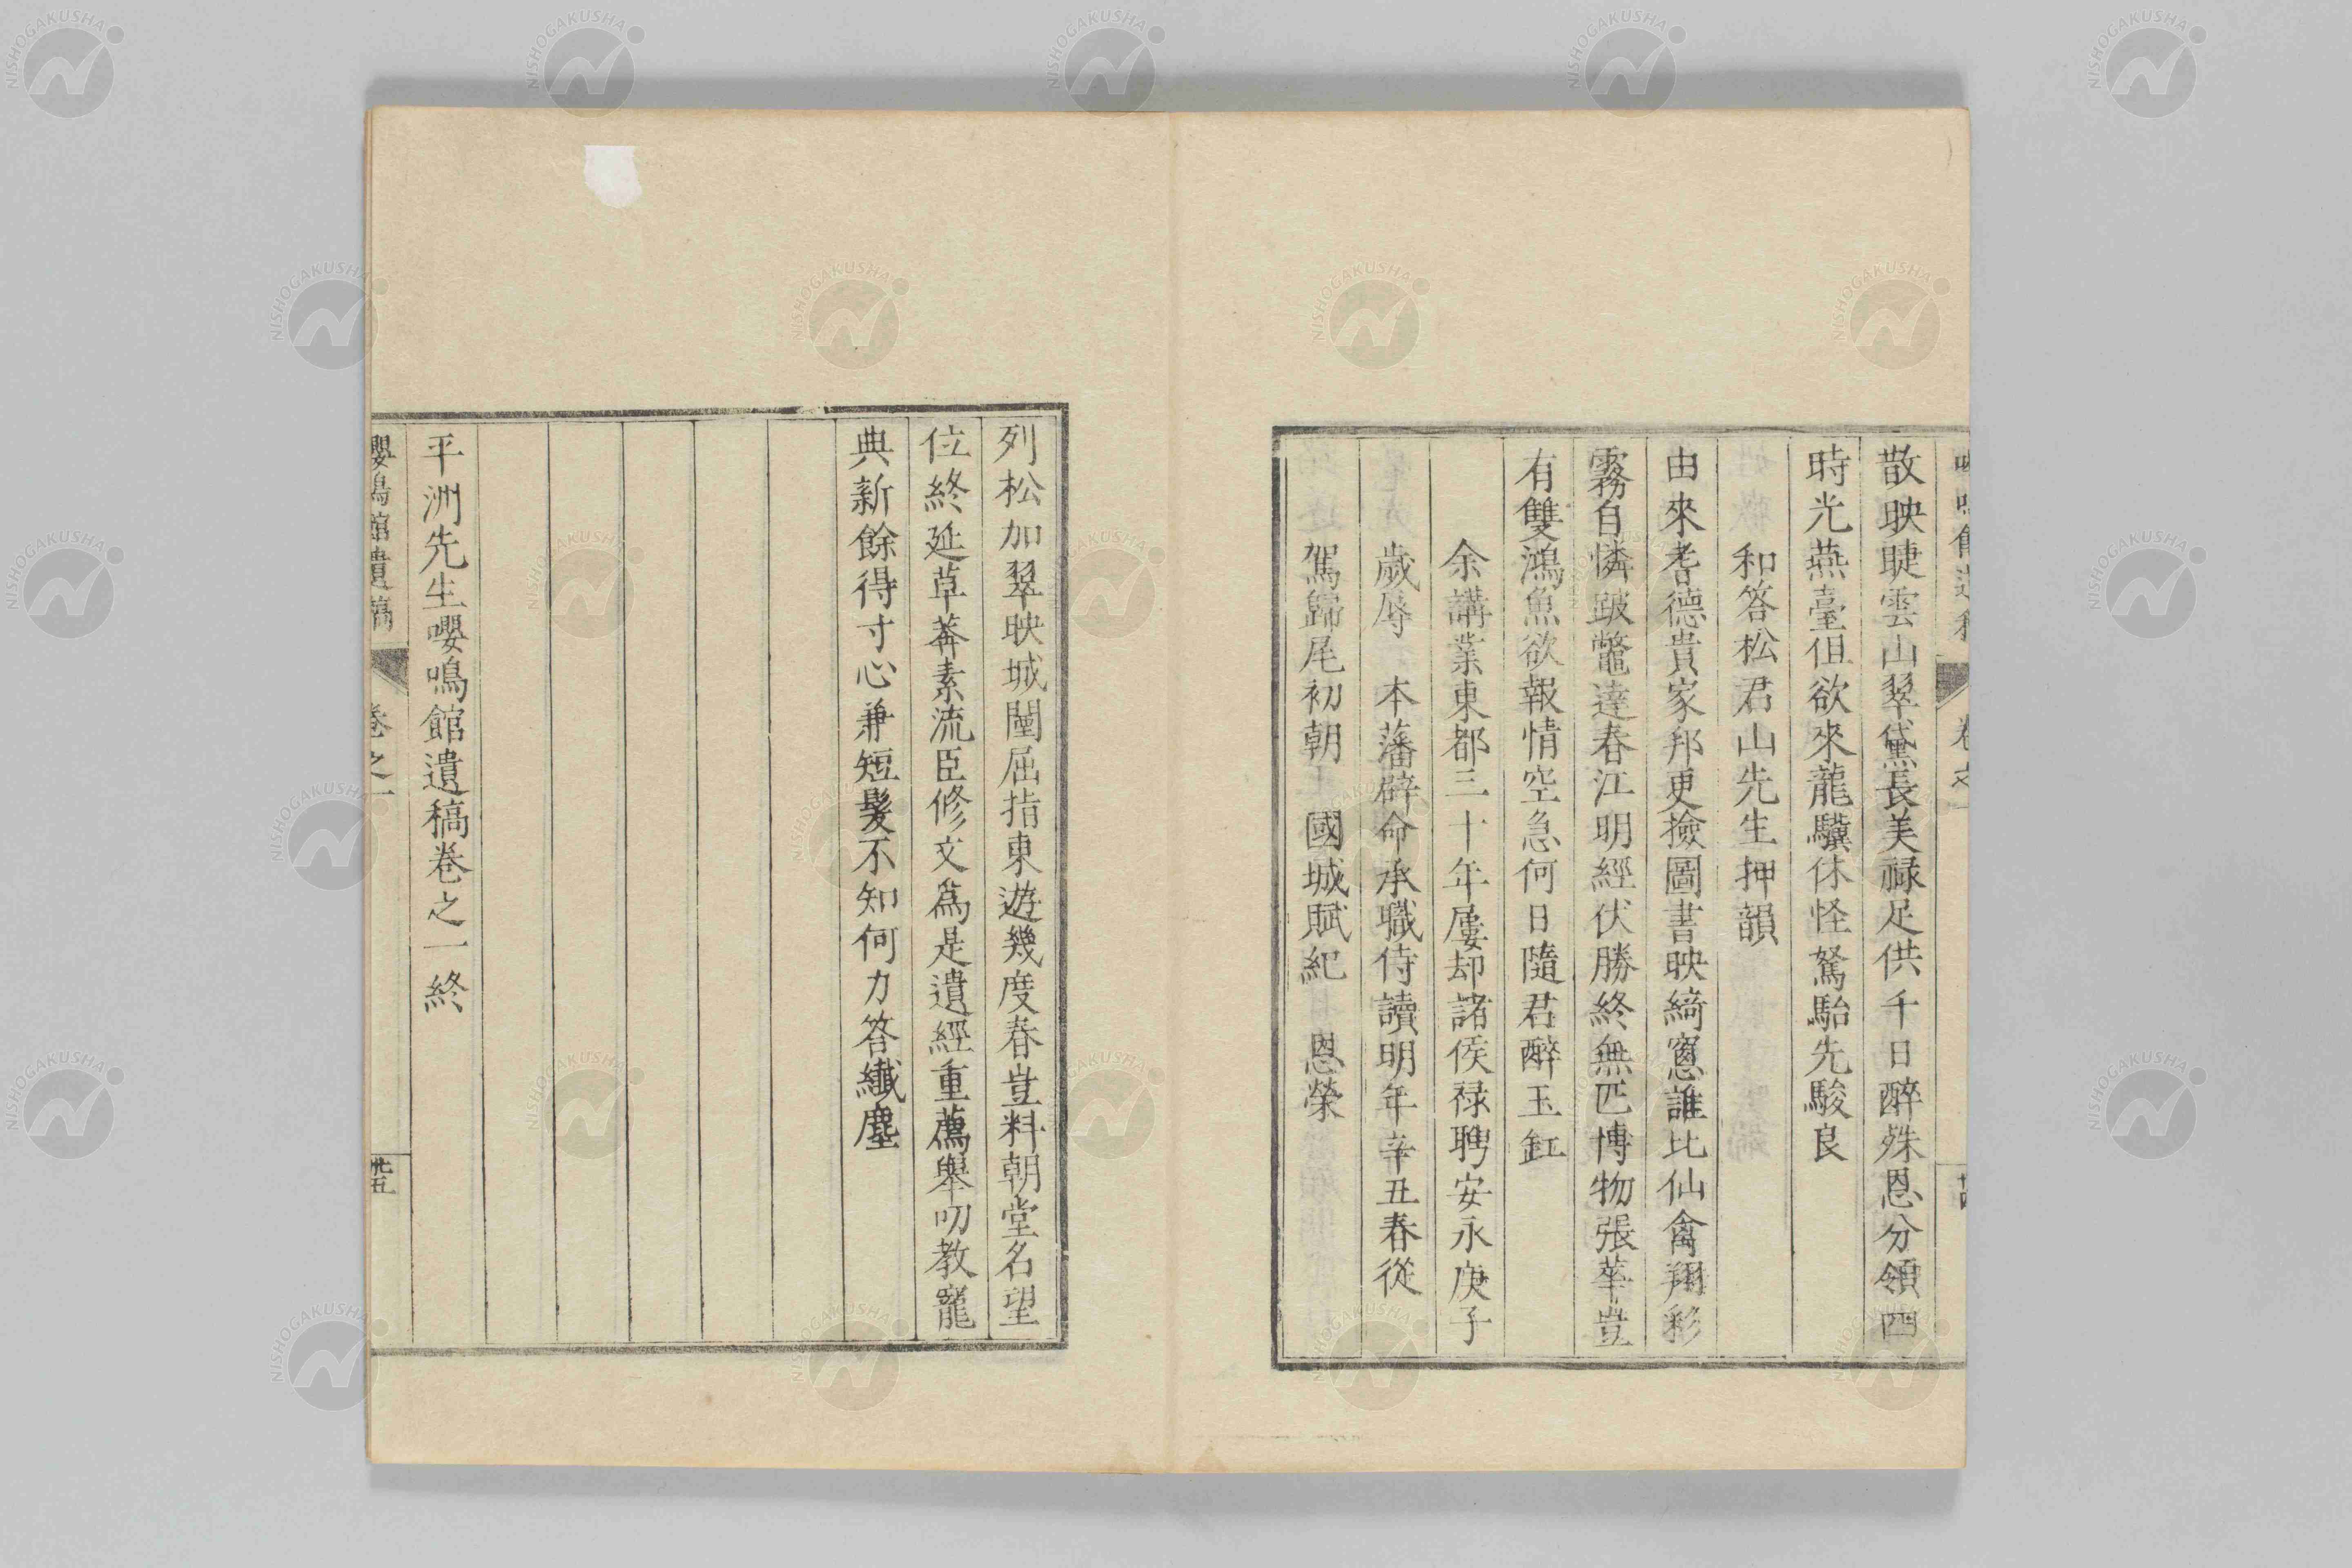 散映睫雲山翠黛長美禄足供千日醉殊恩分領四
時光燕臺但欲來龍驥休怪駑駘先駿良
和答松君山先生押韻
由來耆德貴家邦更撿圖書映綺窻誰比仙禽翔彩
霧自憐跛鼈達春江明經伏勝終無匹博物張華豈
有雙鴻魚欲報情空急何日隨君醉玉缸
余講業東都三十年屢却諸侯禄聘安永庚子
歲辱 本藩辟命承職侍讀明年辛丑春從
駕歸尾初朝 國城賦紀 恩榮
列松加翠映城闉屈指東遊幾度春豈料朝堂名望
位終延草莾素流臣修文爲是遺經重薦舉叨教寵
典新餘得寸心兼短髮不知何力答纖塵
平洲先生嚶鳴館遺稿卷之一終
嚶鳴館遺稿 卷之一 卅五
NISHOGAKUSHA